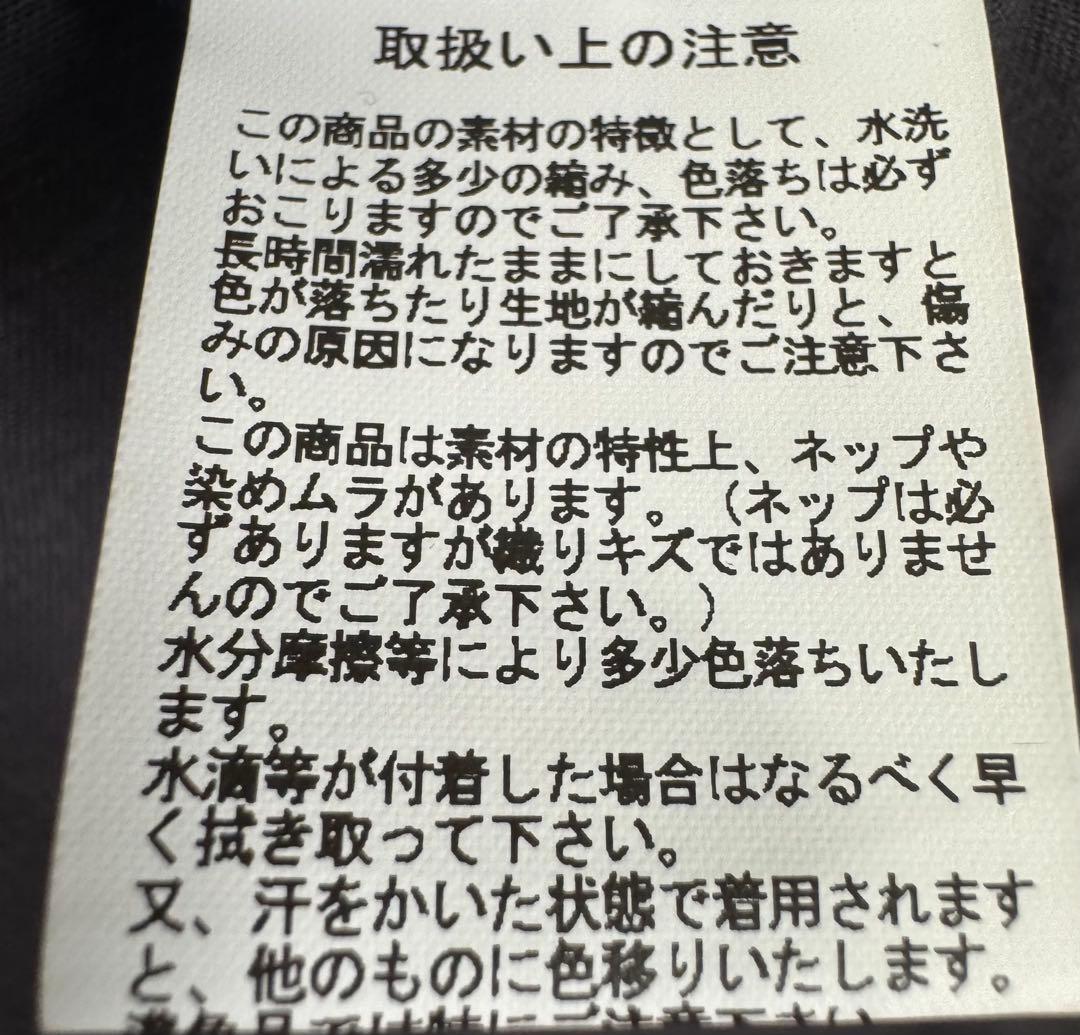 取扱い上の注意
この商品の素材の特徴として、水洗
いによる多少の縮み、色落ちは必ず
おこりますのでご了承下さい。
長時間濡れたままにしておきますと
色が落ちたり生地が縮んだりと、傷
みの原因になりますのでご注意下さ
い。
この商品は素材の特性上、ネップや
染めムラがあります。（ネップは必
ずありますが織りキズではありませ
んのでご了承下さい。）
水分摩擦等により多少色落ちいたし
ます。
水滴等が付着した場合はなるべく早
く拭き取って下さい。
又、汗をかいた状態で着用されます
と、他のものに色移りいたします。
品では特にご注意下さい